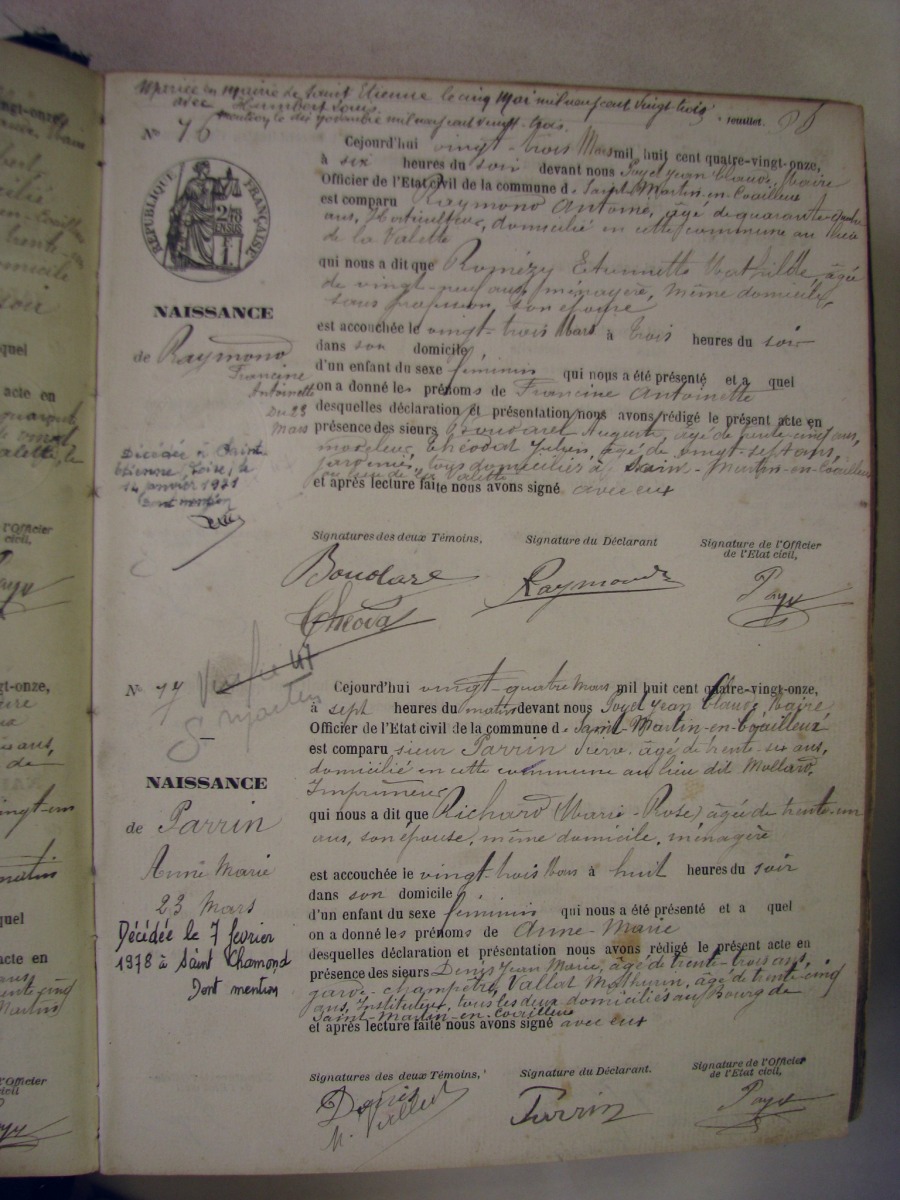 Mariée en Mairie de Saint Etienne le cinq Mai mil neuf cent vingt trois
avec Humbert Louis
mention le dix novembre mil neuf cent vingt-trois.
feuillet.
N° 76
RÉPUBLIQUE FRANÇAISE
NAISSANCE
de Raymond
Francine
Antoinette
Du 23
Mars
Décédée à Saint-
Etienne, Loire, le
14 janvier 1971
Dont mention
Cejourd'hui vingt-trois Mars mil huit cent quatre-vingt-onze,
à six heures du soir devant nous Poyet Jean Claude, Maire
Officier de l'Etat civil de la commune de Saint-Martin-en-Coailleux
est comparu Raymond Antoine, âgé de quarante-quatre
ans, Horticulteur, domicilié en cette commune au lieu
de la Valette
qui nous a dit que Romézy Etiennette Mathilde, âgée
de vingt-neuf ans, ménagère, même domicile,
sans profession, son épouse
est accouchée le vingt-trois Mars à trois heures du soir
dans son domicile
d'un enfant du sexe féminin qui nous a été présenté et a quel
on a donné les prénoms de Francine Antoinette
desquelles déclaration et présentation nous avons rédigé le présent acte en
présence des sieurs Boudarel Auguste, âgé de trente-cinq ans,
modeleur, Théodat Julien, âgé de vingt-sept ans,
jardinier, tous domiciliés à Saint-Martin-en-Coailleux
au lieu de la Valette
et après lecture faite nous avons signé avec eux
Signatures des deux Témoins, Signature du Déclarant Signature de l'Officier
de l'Etat civil,
Boudarel Raymond Poyet
N° 77 Vérifié
St Martin
NAISSANCE
de Parrin
Anne Marie
23 Mars
Décédée le 7 février
1978 à Saint Chamond
Dont mention
Cejourd'hui vingt-quatre Mars mil huit cent quatre-vingt-onze,
à sept heures du matin devant nous Poyet Jean Claude Maire
Officier de l'Etat civil de la commune de Saint-Martin-en-Coailleux
est comparu sieur Parrin Pierre, âgé de trente-six ans,
domicilié en cette commune au lieu dit Mollard,
Imprimeur
qui nous a dit que Richard (Marie-Rose) âgée de trente-un
ans, son épouse, même domicile, ménagère
est accouchée le vingt-trois Mars à huit heures du soir
dans son domicile
d'un enfant du sexe féminin qui nous a été présenté et a quel
on a donné les prénoms de Anne-Marie
desquelles déclaration et présentation nous avons rédigé le présent acte en
présence des sieurs Denis Jean Marie, âgé de trente-trois ans,
garde-champêtre, Vallat Mathurin, âgé de trente-cinq
ans, Instituteur, tous les deux domiciliés au Bourg de
Saint-Martin-en-Coailleux
et après lecture faite nous avons signé avec eux
Signatures des deux Témoins, Signature du Déclarant. Signature de l'Officier
de l'Etat civil,
Denis Parrin Poyet